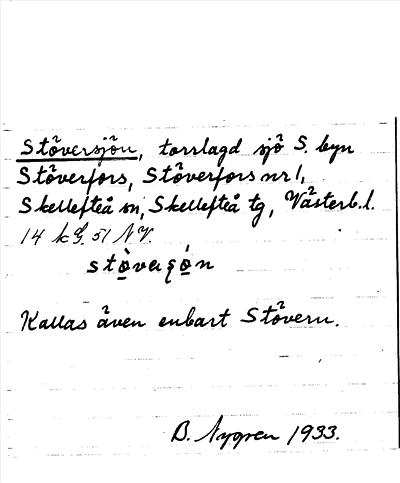 Stöversjön, torrlagd sjö S. byn
Stöverfors, Stöverfors nr 1,
Skellefteå sn, Skellefteå tg, Västerb. l.
14 k G. 51 NV.
Kallas även enbart Stövern.
B. Nygren 1933.